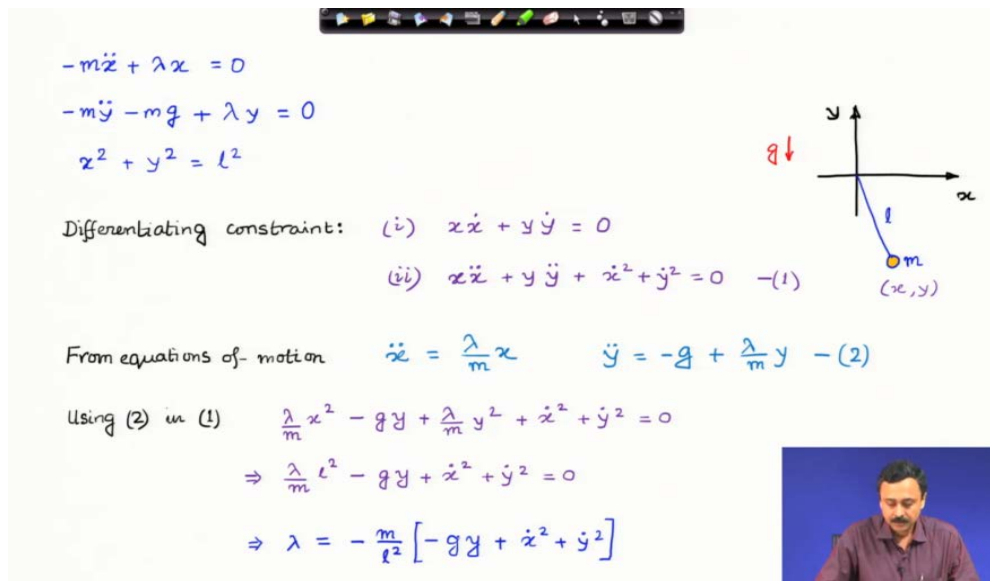 -mẍ + λx = 0
-mÿ - mg + λy = 0
x² + y² = l²
y
g↓
x
l
m
(x, y)
Differentiating constraint: (i) xẋ + yẏ = 0
(ii) xẍ + yÿ + ẋ² + ẏ² = 0 -(1)
From equations of motion ẍ = λ/m x ÿ = -g + λ/m y -(2)
Using (2) in (1) λ/m x² - gy + λ/m y² + ẋ² + ẏ² = 0
⇒ λ/m l² - gy + ẋ² + ẏ² = 0
⇒ λ = - m/l² [-gy + ẋ² + ẏ²]